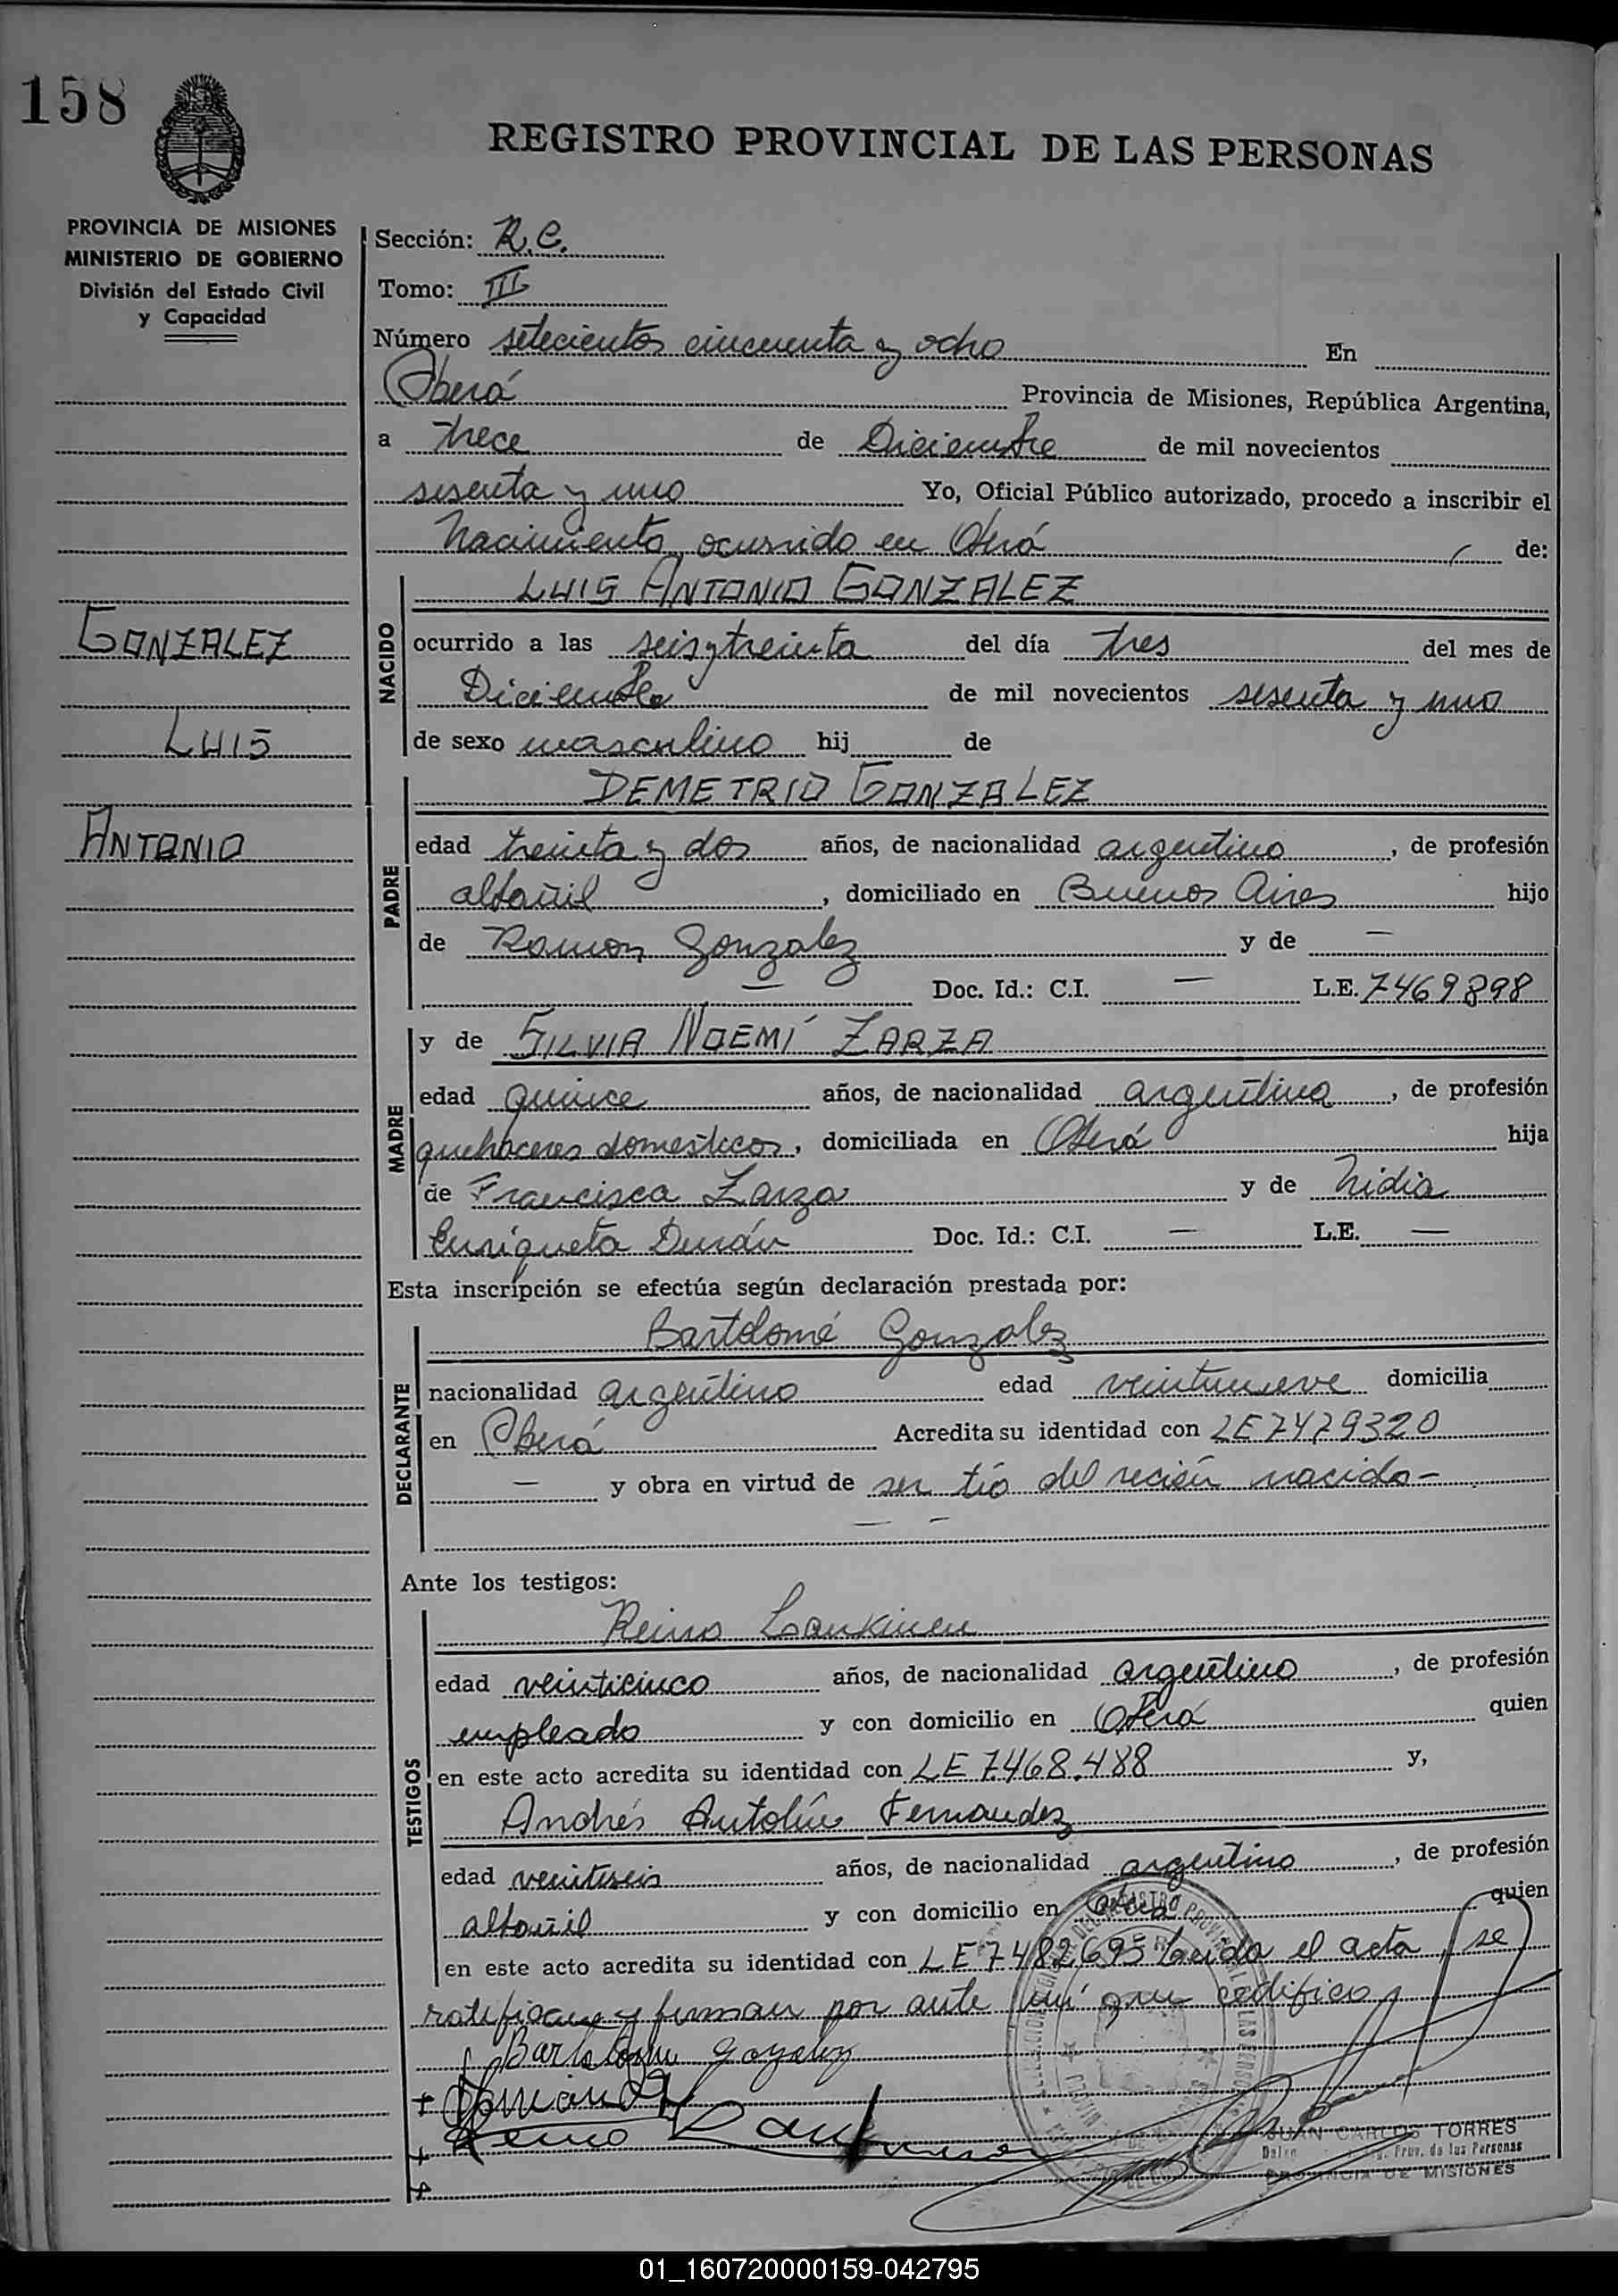 158
REGISTRO PROVINCIAL DE LAS PERSONAS
PROVINCIA DE MISIONES
MINISTERIO DE GOBIERNO
División del Estado Civil
y Capacidad
GONZALEZ
LUIS
ANTONIO
Sección: R.C.
Tomo: III
Número setecientos cincuenta y ocho En
Oberá Provincia de Misiones, República Argentina,
a trece de Diciembre de mil novecientos
sesenta y uno Yo, Oficial Público autorizado, procedo a inscribir el
Nacimiento ocurrido en Oberá de:
NACIDO
LUIS ANTONIO GONZALEZ
ocurrido a las seis y treinta del día tres del mes de
Diciembre de mil novecientos sesenta y uno
de sexo masculino hij de
PADRE
DEMETRIO GONZALEZ
edad treinta y dos años, de nacionalidad argentino, de profesión
albañil, domiciliado en Buenos Aires hijo
de Ramon Gonzalez y de —
— Doc. Id.: C.I. — L.E. 7469898
MADRE
y de SILVIA NOEMÍ ZARZA
edad quince años, de nacionalidad argentina, de profesión
quehaceres domesticos, domiciliada en Oberá hija
de Francisca Zarza y de Nidia
Enriqueta Durán Doc. Id.: C.I. — L.E. —
Esta inscripción se efectúa según declaración prestada por:
DECLARANTE
Bartolomé Gonzalez
nacionalidad argentino edad veintinueve domicilia
en Oberá Acredita su identidad con LE 7479320
— y obra en virtud de ser tío del recién nacido —
— —
Ante los testigos:
TESTIGOS
Reino Laukinen
edad veinticinco años, de nacionalidad argentino, de profesión
empleado y con domicilio en Oberá quien
en este acto acredita su identidad con LE 7.468.488 y,
Andrés Antolín Fernandez
edad veintiseis años, de nacionalidad argentino, de profesión
albañil y con domicilio en Oberá quien
en este acto acredita su identidad con LE 7482695 Leida el acta, se
ratifican y firman por ante mí que certifico
JUAN CARLOS TORRES
Prov. de las Personas
PROVINCIA DE MISIONES
01_160720000159-042795